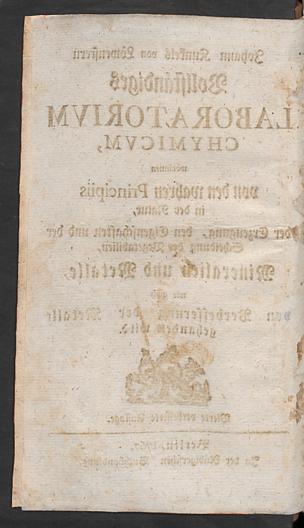 Johann Kunkels von Löwenstern
Vollständiges
LABORATORIVM
CHYMICVM,
worinnen
von den wahren Principiis
in der Natur,
der Erzeugung, den Eigenschaften und der
Scheidung der Vegetabilien,
Mineralien und Metalle,
wie auch
von Verbesserung der Metalle
gehandelt wird.
Vierte verbesserte Auflage.
Berlin, 1767.
In der Rüdigerschen Buchhandlung